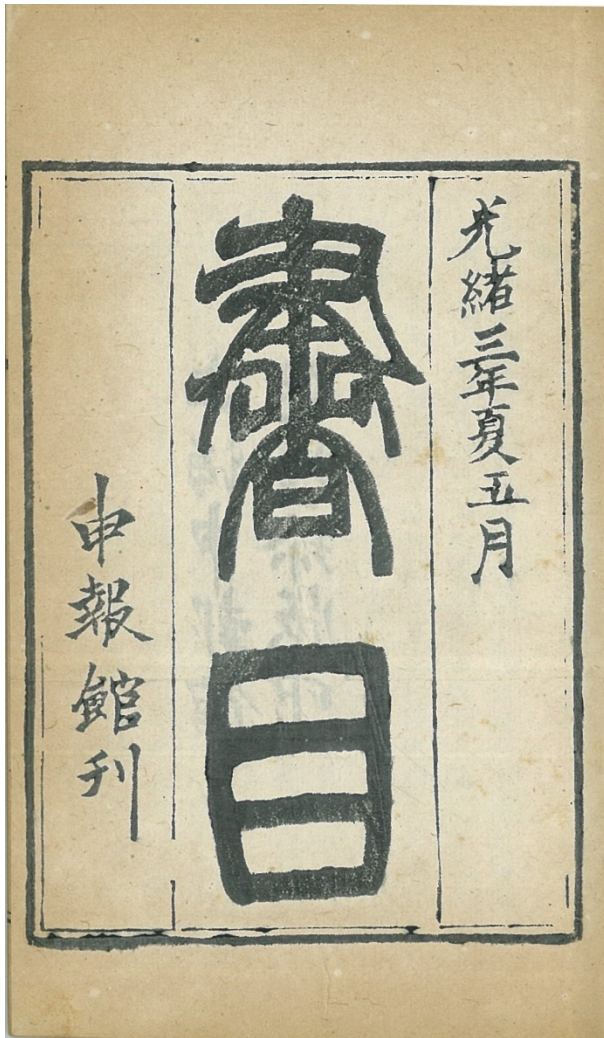 光緒三年夏五月
書目
申報館刊